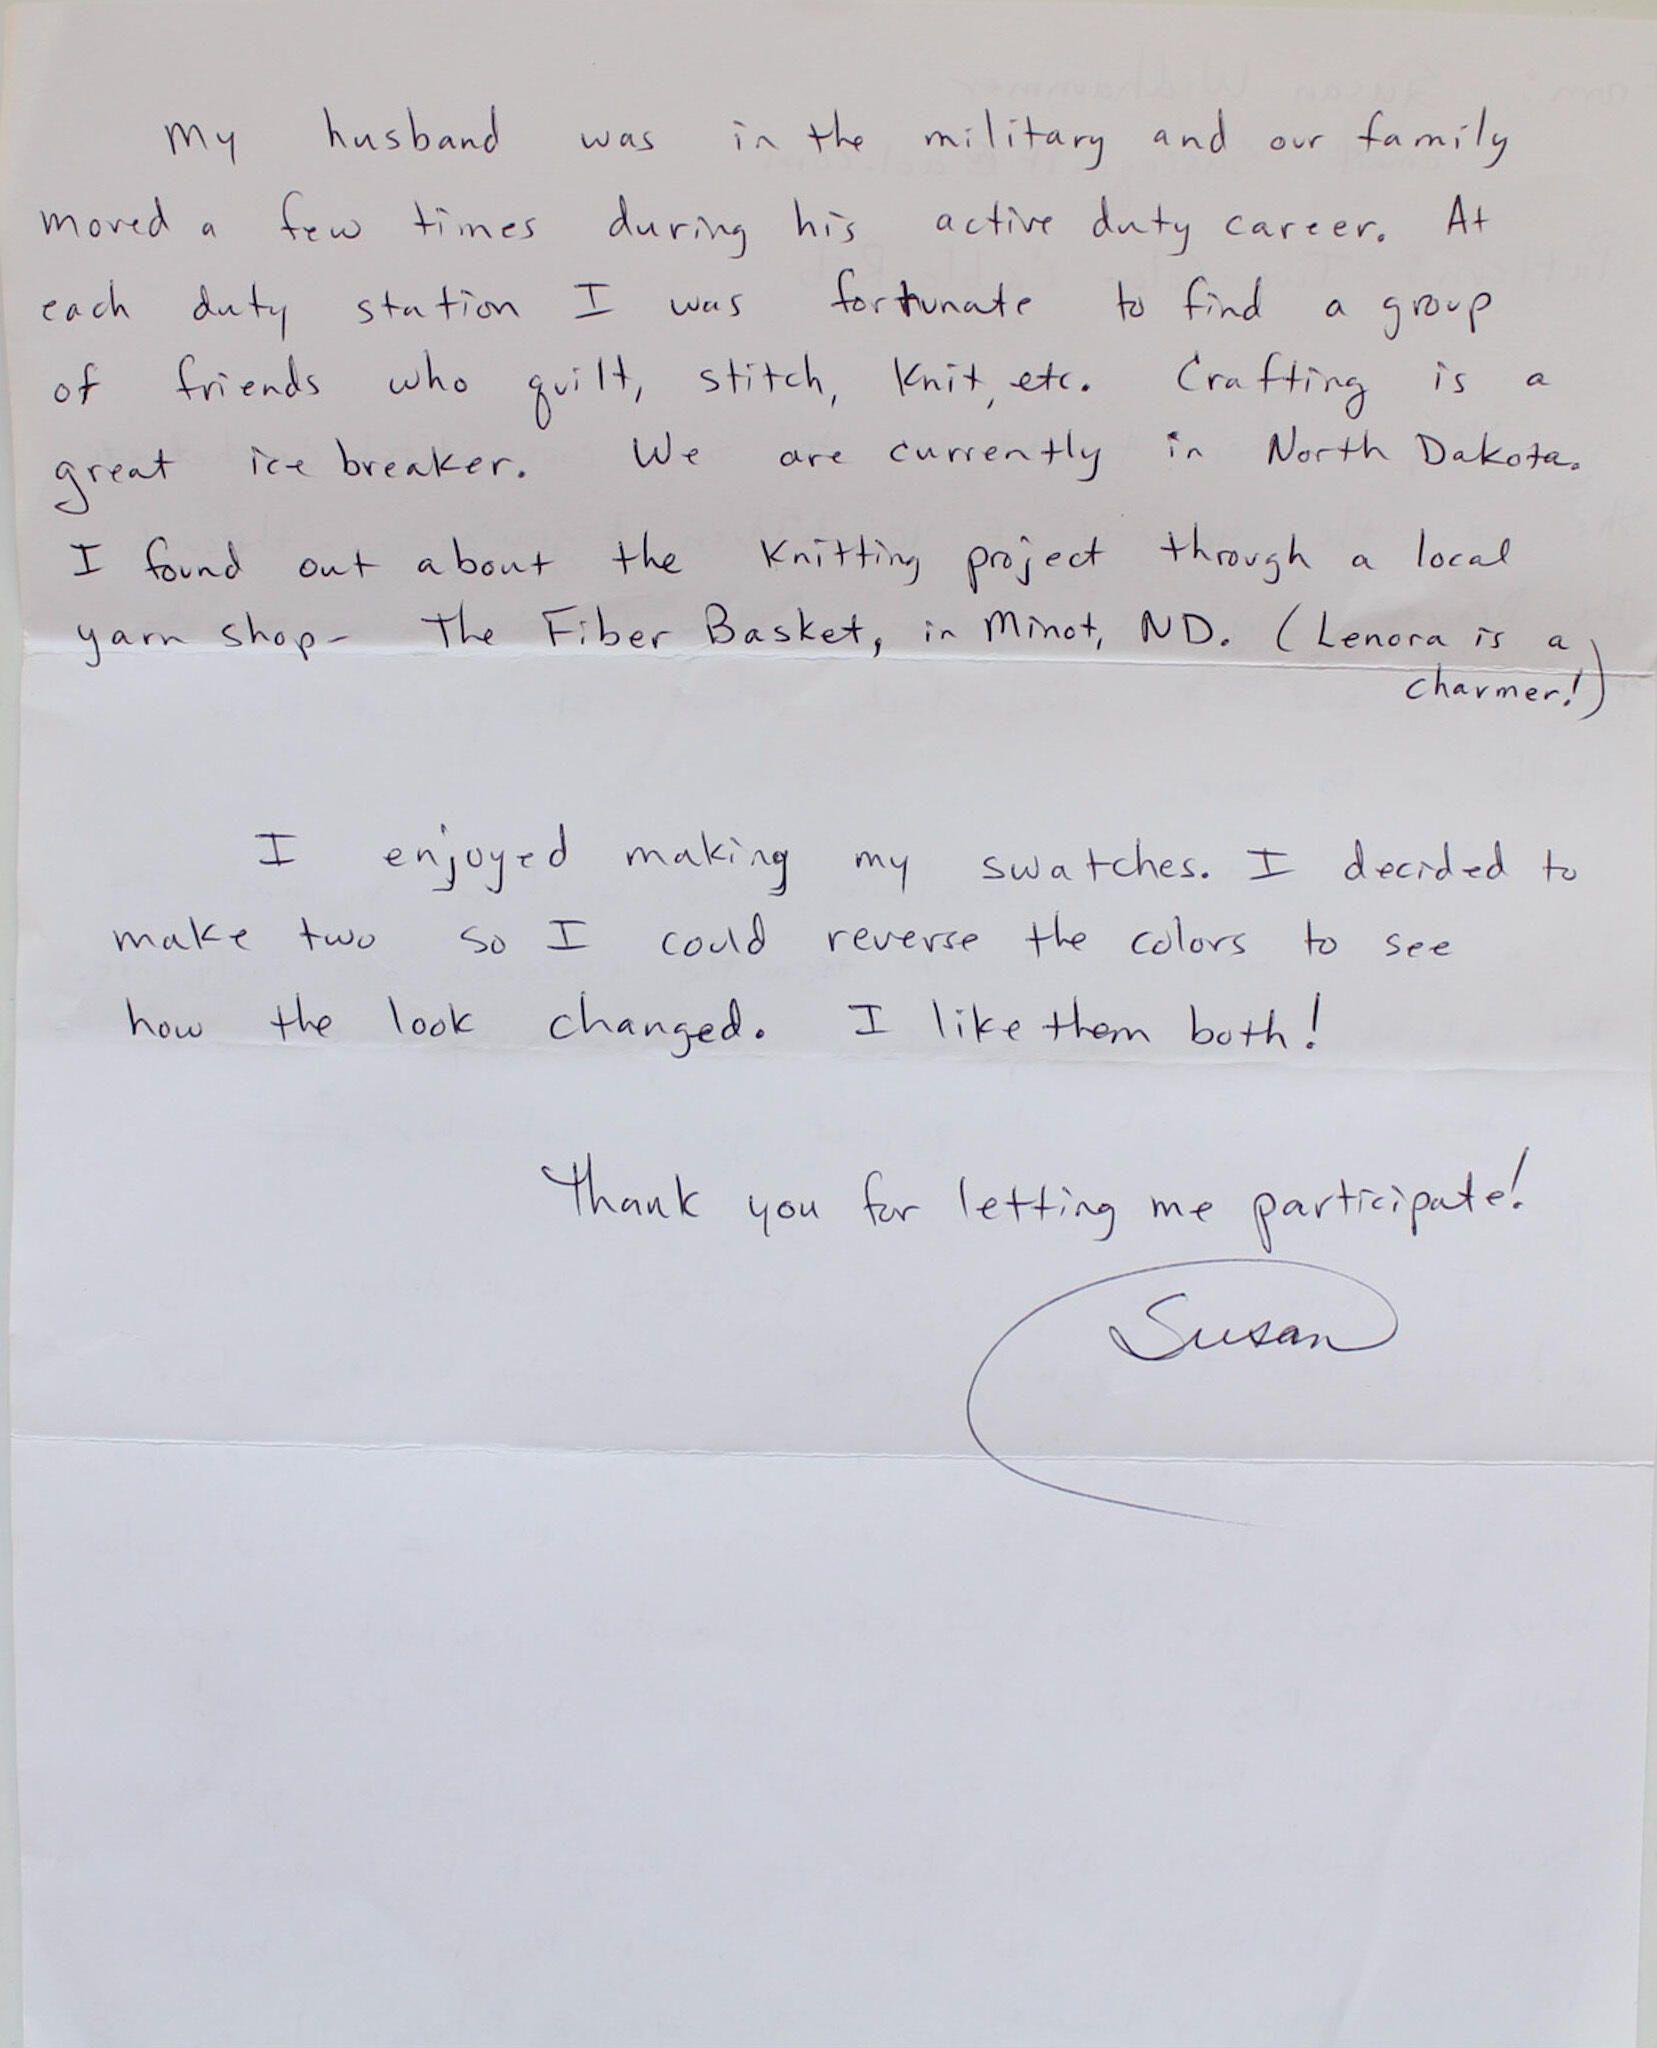 My husband was in the military and our family
moved a few times during his active duty career. At
each duty station I was fortunate to find a group
of friends who quilt, stitch, knit, etc. Crafting is a
great ice breaker. We are currently in North Dakota.
I found out about the knitting project through a local
yarn shop- The Fiber Basket, in Minot, ND. (Lenora is a
charmer!)
I enjoyed making my swatches. I decided to
make two so I could reverse the colors to see
how the look changed. I like them both!
Thank you for letting me participate!
Susan